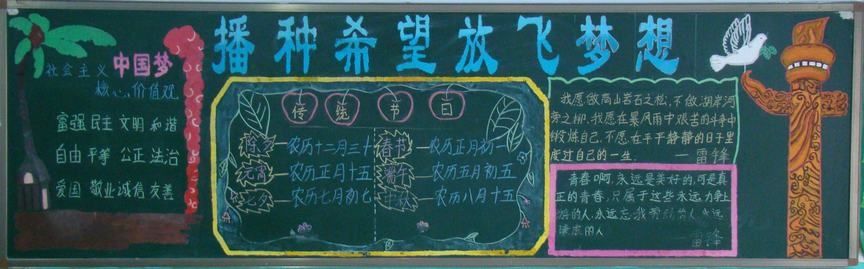 播种希望放飞梦想
社会主义
中国梦
核心价值观
富强 民主 文明 和谐
自由 平等 公正 法治
爱国 敬业 诚信 友善
传统节日
除夕—农历十二月三十
元宵—农历正月十五
七夕—农历七月初七
春节—农历正月初一
端午—农历五月初五
中秋—农历八月十五
我愿做高山岩石之松,不做湖岸河
旁之柳。我愿在暴风雨中艰苦的斗争中
锻炼自己,不愿在平平静静的日子里
度过自己的一生。 —雷锋
青春啊,永远是美好的,可是真
正的青春,只属于这些永远力争上
游的人,永远忘我劳动的人,永远
谦虚的人
雷锋